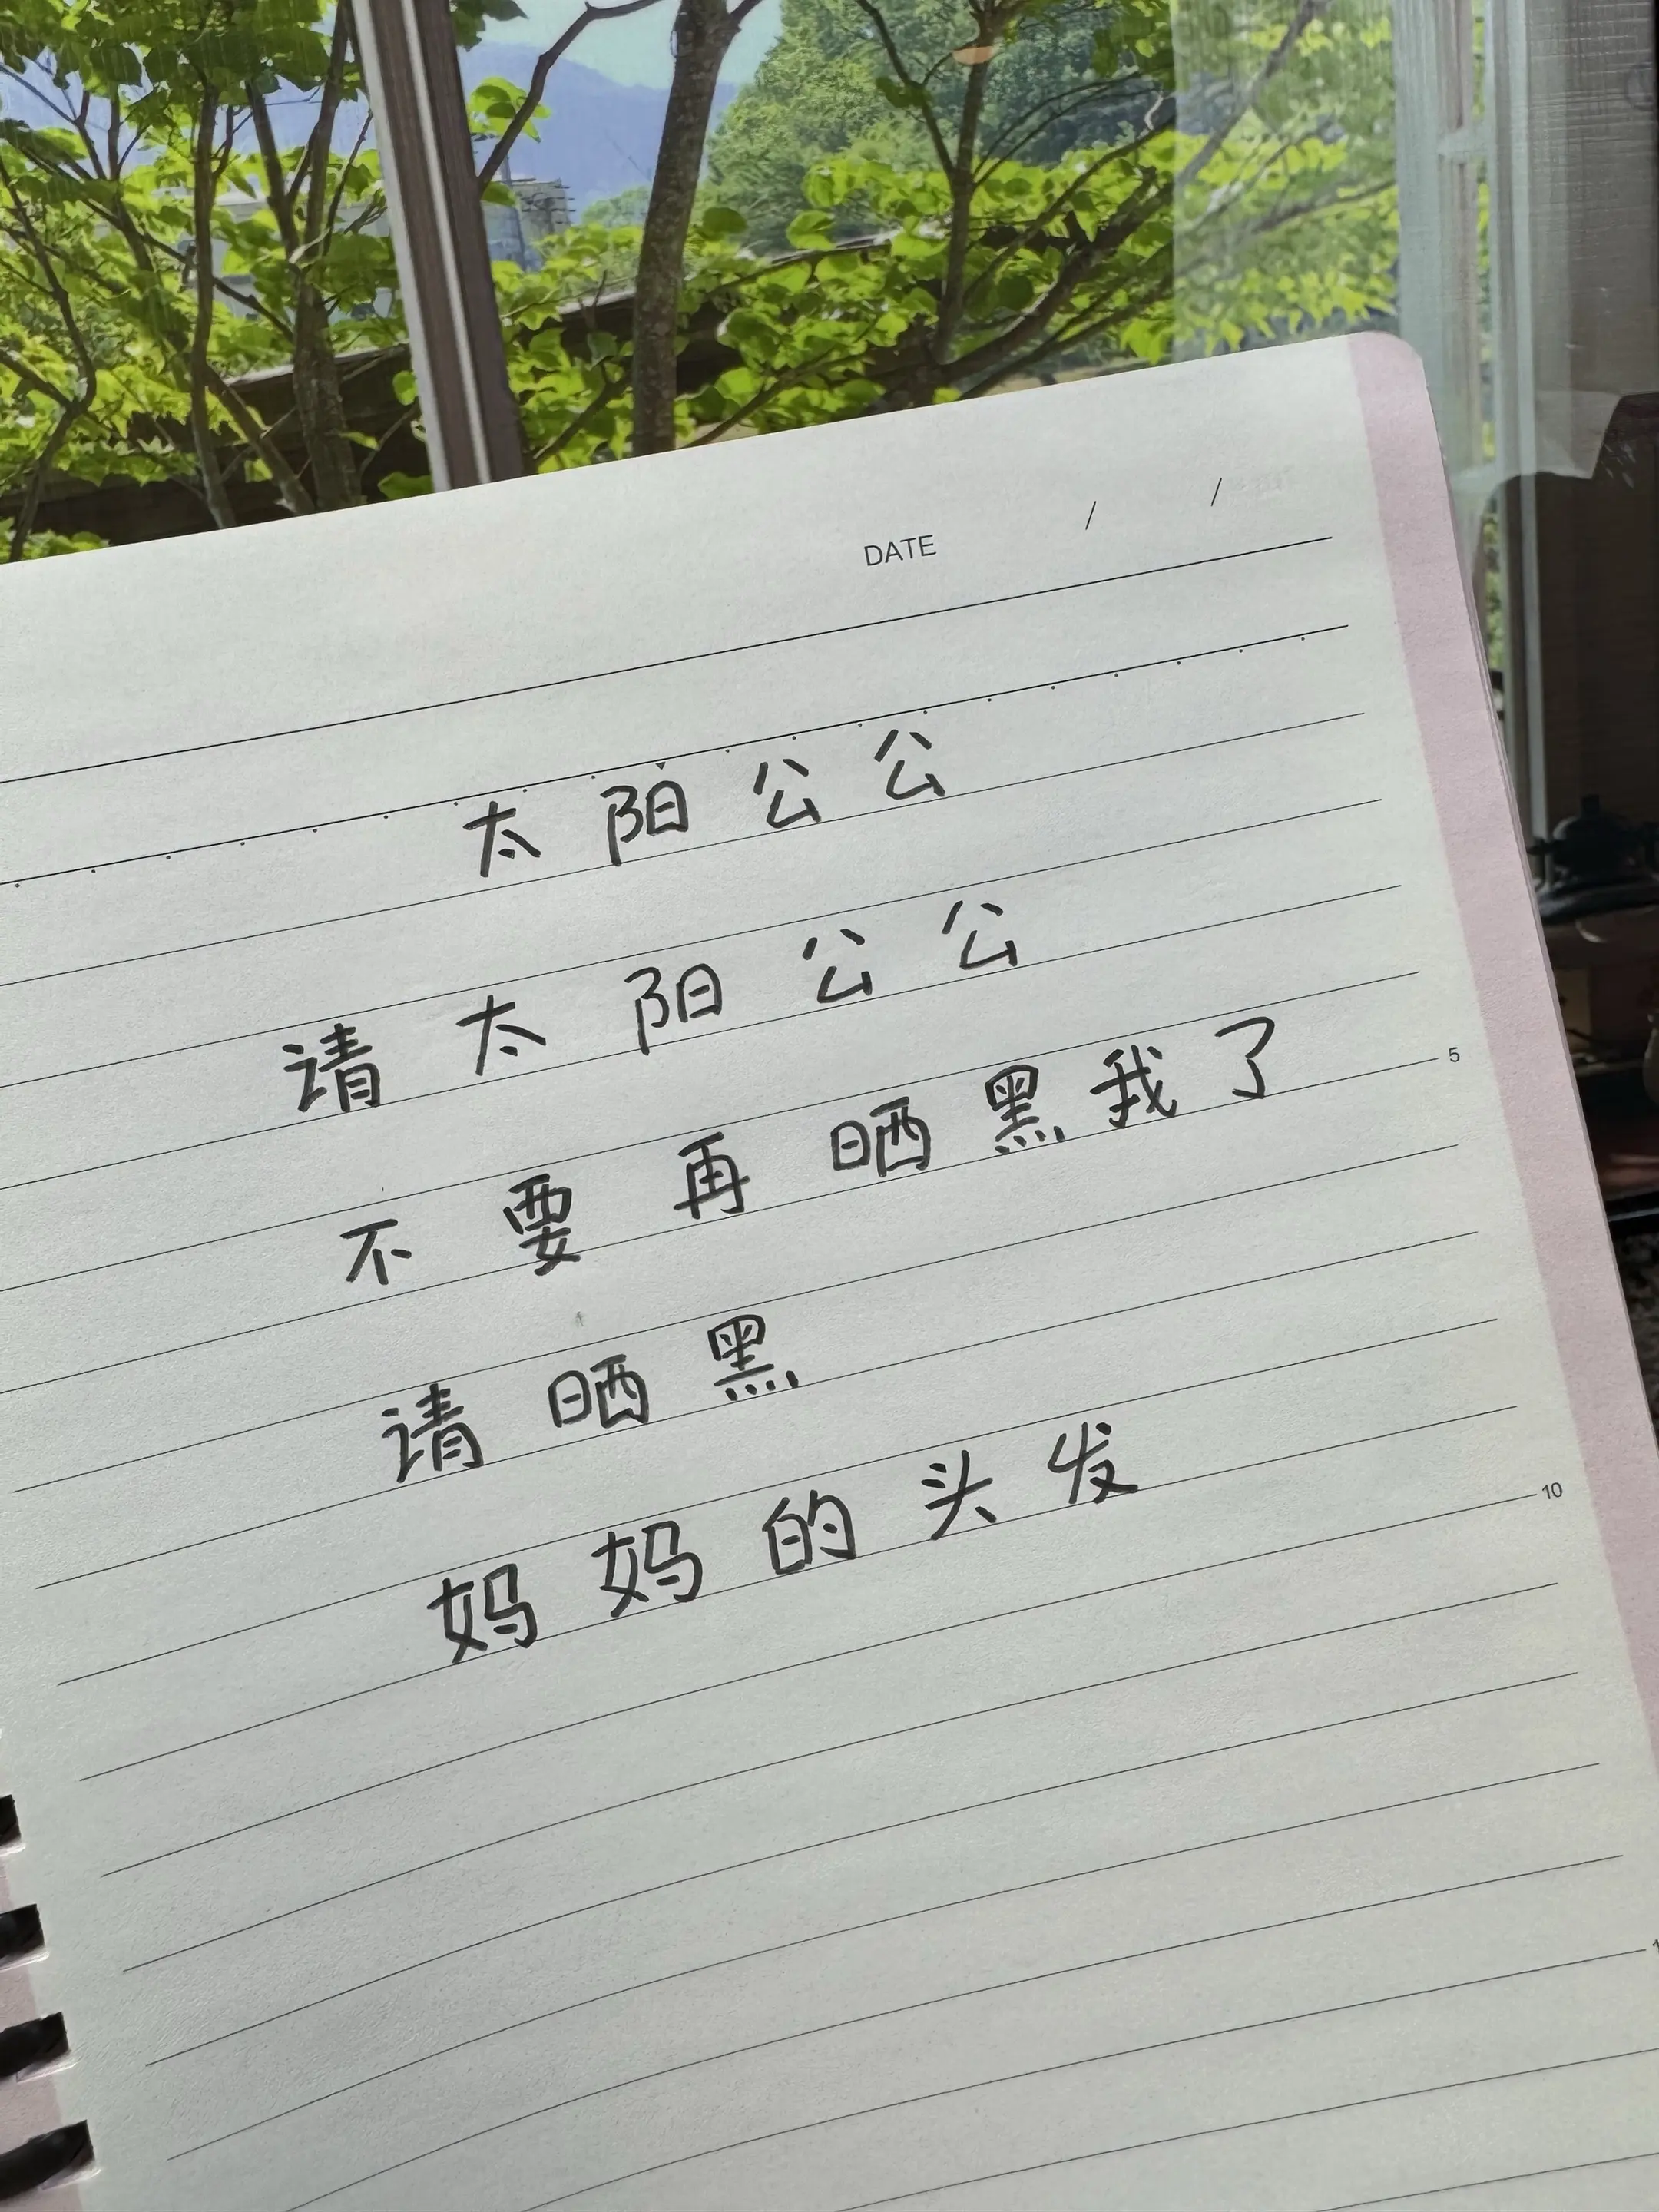 DATE / /
太阳公公
请太阳公公
不要再晒黑我了
5
请晒黑
妈妈的头发
10